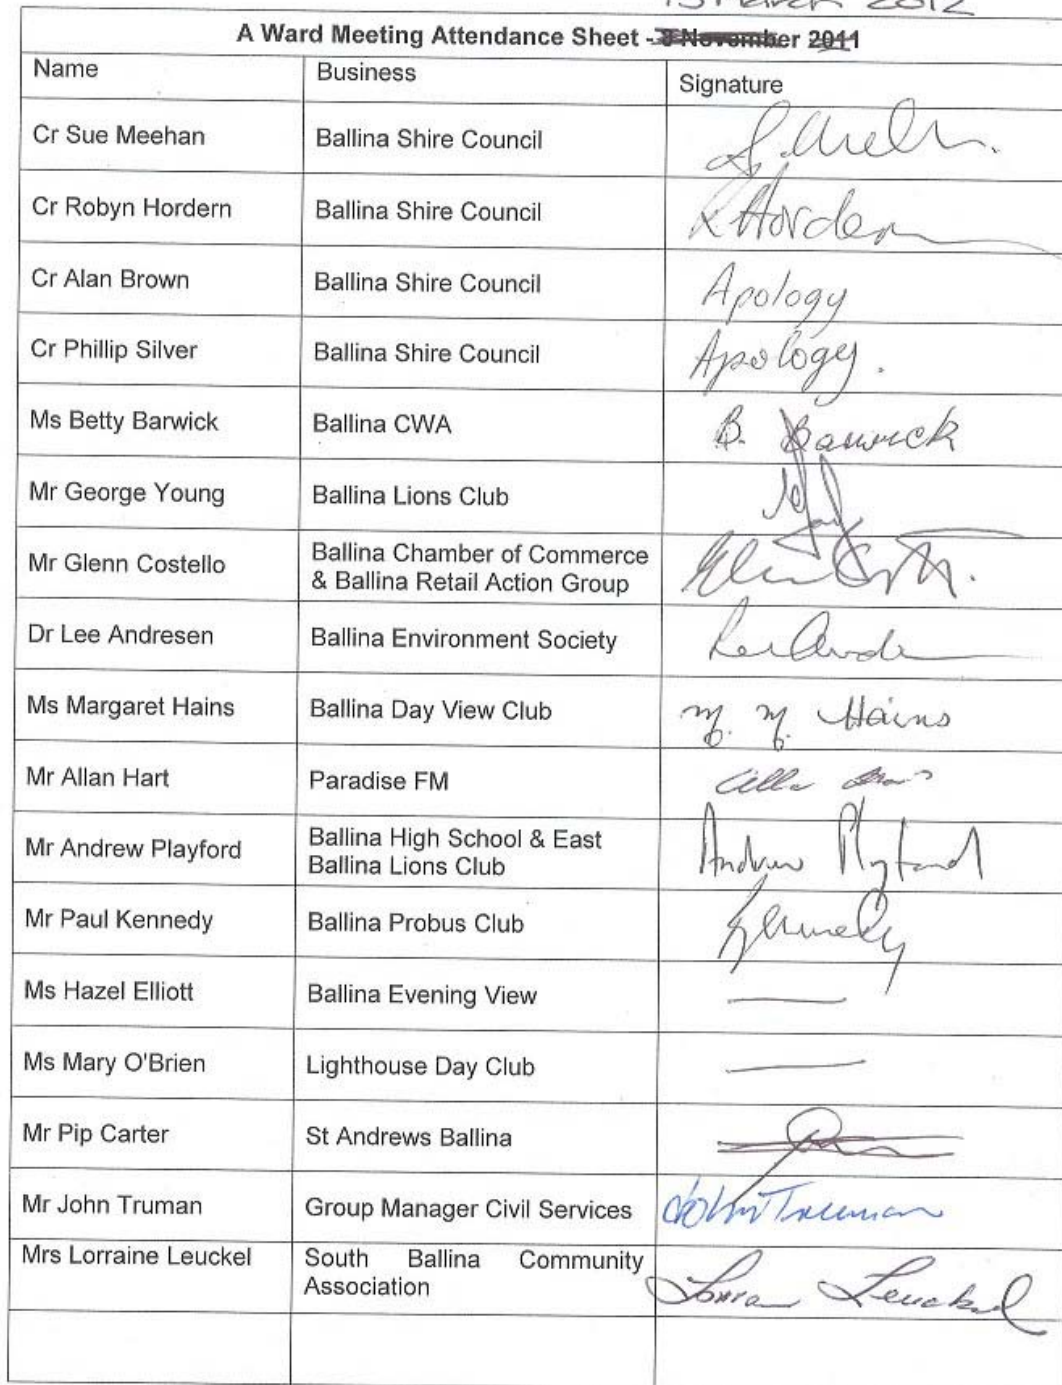 March 2012
A Ward Meeting Attendance Sheet - 8 November 2011
Name Business Signature
Cr Sue Meehan Ballina Shire Council
Cr Robyn Hordern Ballina Shire Council R Hordern
Cr Alan Brown Ballina Shire Council Apology
Cr Phillip Silver Ballina Shire Council Apology.
Ms Betty Barwick Ballina CWA B. Barwick
Mr George Young Ballina Lions Club
Mr Glenn Costello Ballina Chamber of Commerce
& Ballina Retail Action Group
Dr Lee Andresen Ballina Environment Society
Ms Margaret Hains Ballina Day View Club M. M. Hains
Mr Allan Hart Paradise FM
Mr Andrew Playford Ballina High School & East
Ballina Lions Club Andrew Playford
Mr Paul Kennedy Ballina Probus Club Kennedy
Ms Hazel Elliott Ballina Evening View
Ms Mary O'Brien Lighthouse Day Club
Mr Pip Carter St Andrews Ballina
Mr John Truman Group Manager Civil Services John Truman
Mrs Lorraine Leuckel South Ballina Community
Association Lorraine Leuckel